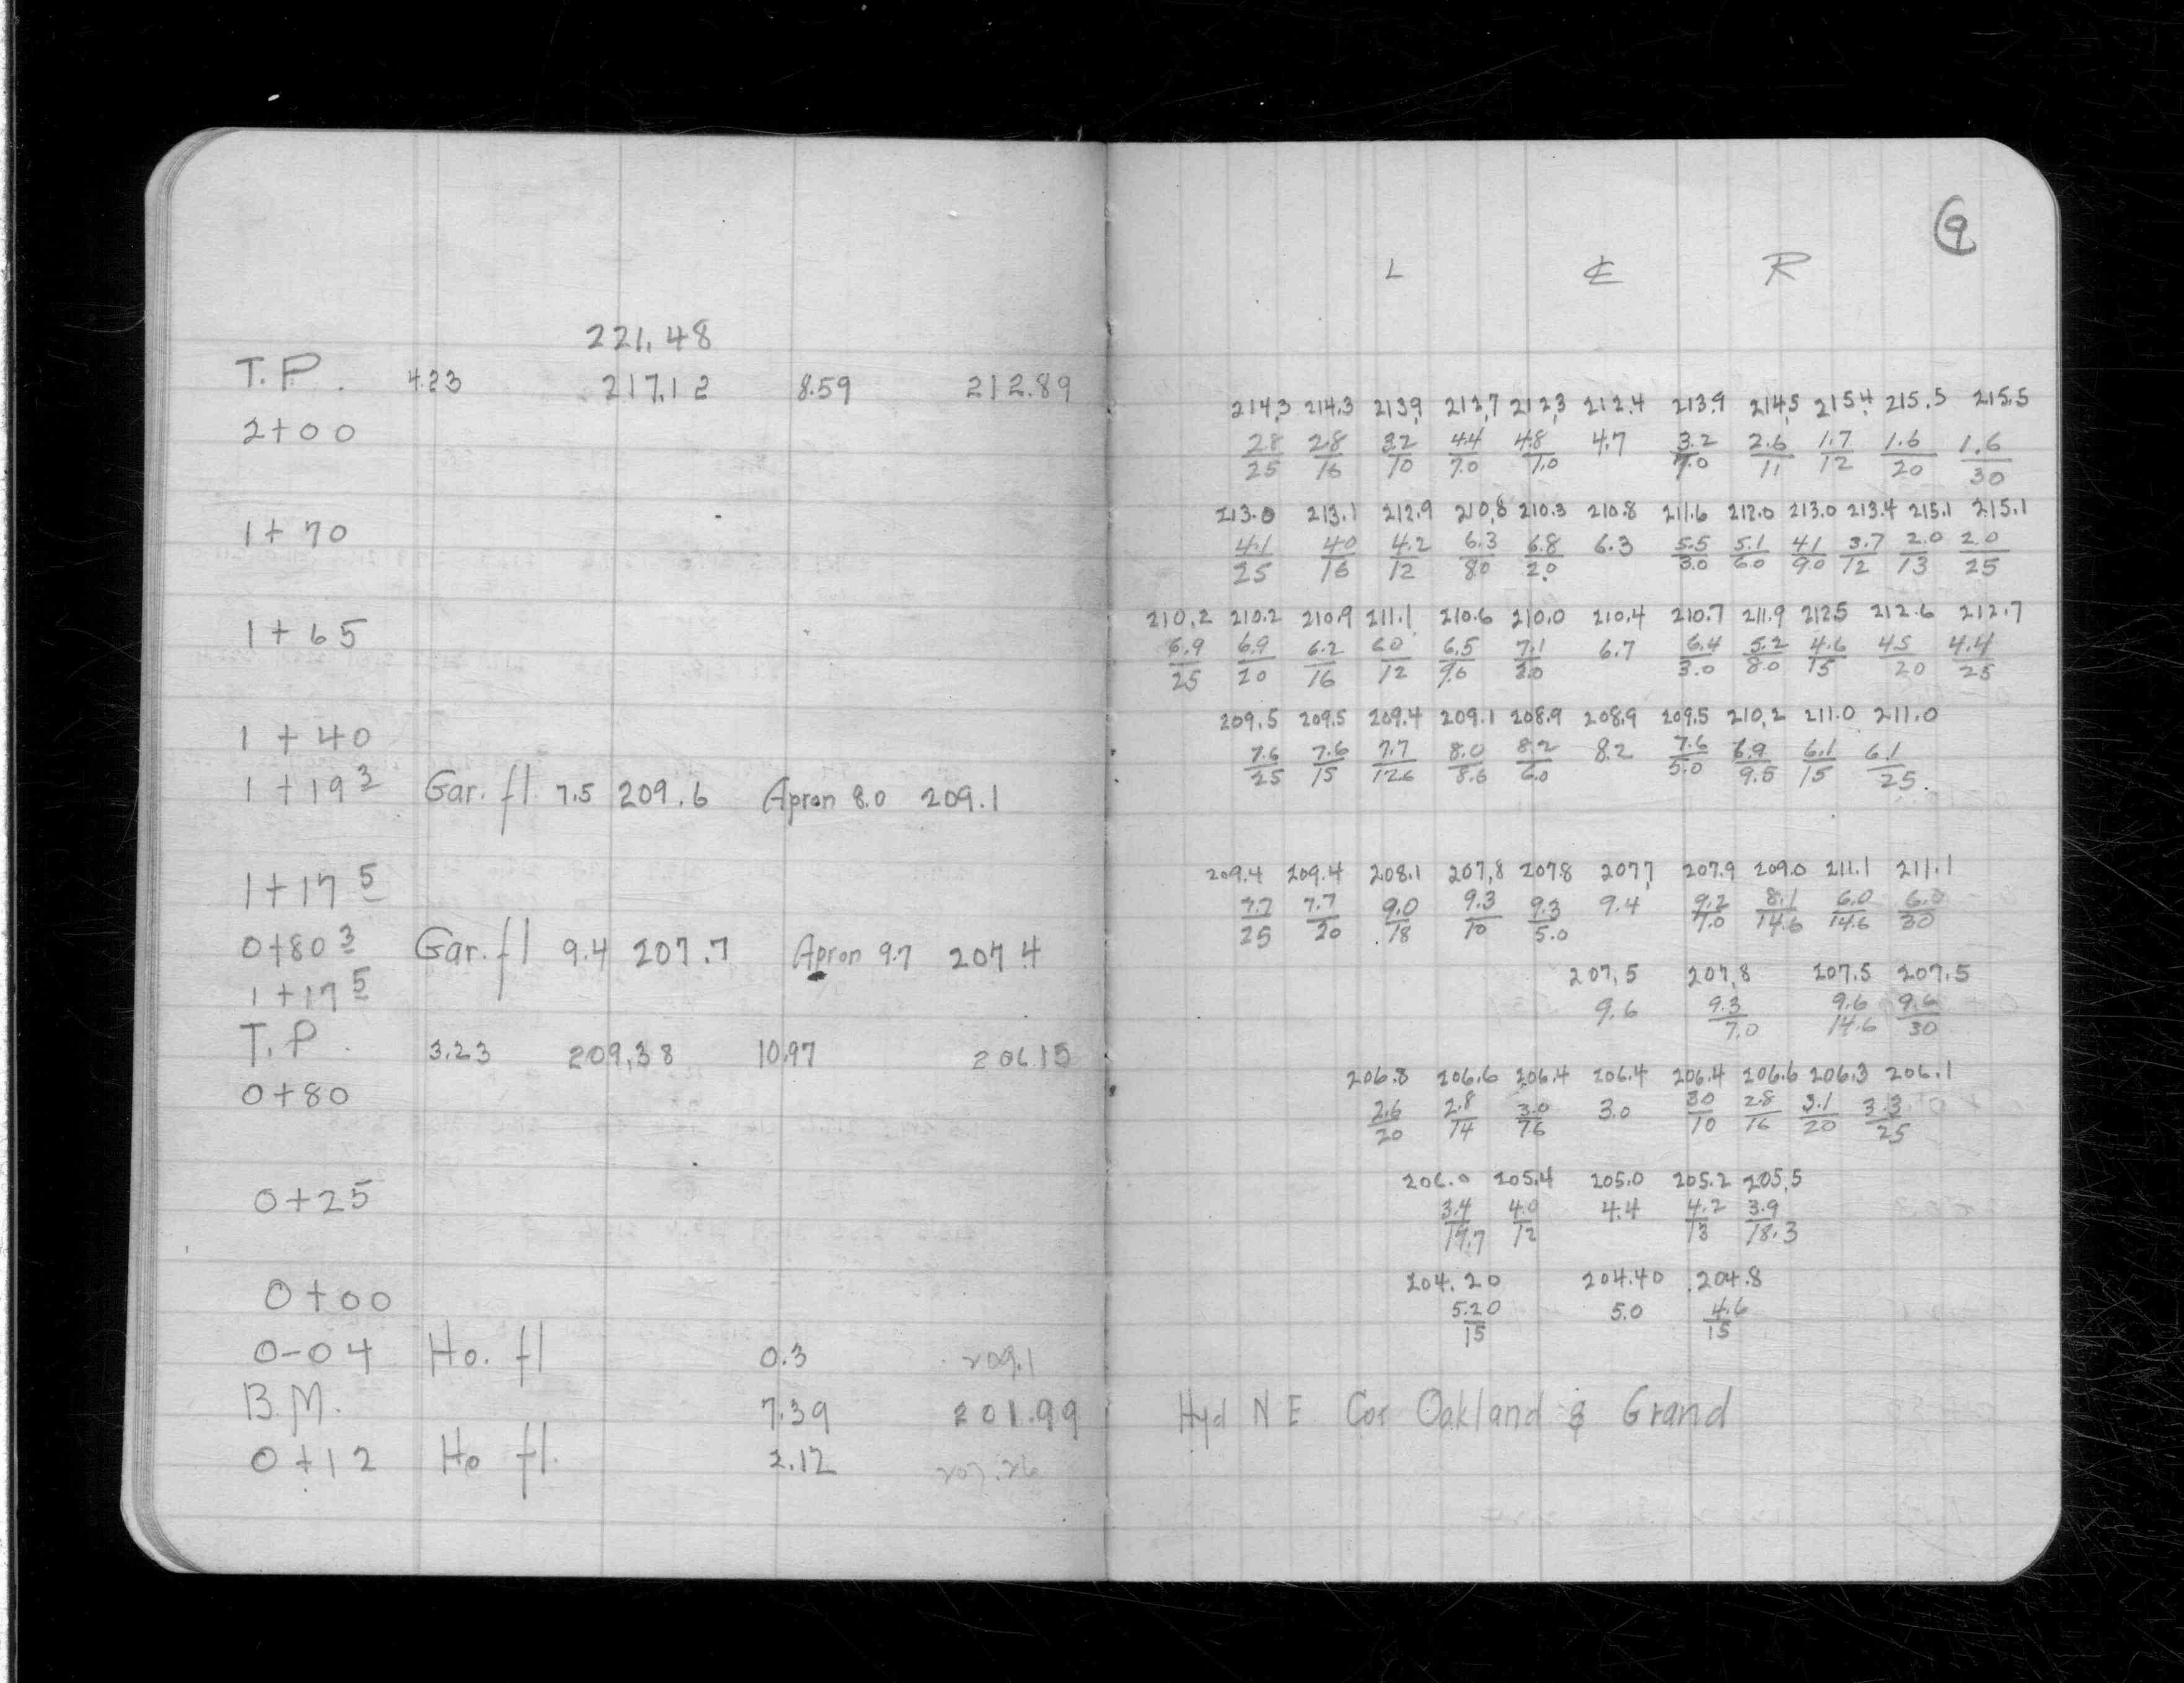 9
L ℄ R
221.48
T.P. 4.23 217.12 8.59 212.89
214.3 214.3 213.9 212.7 212.3 212.4 213.9 214.5 215.4 215.5 215.5
2+00 2.8/25 2.8/16 3.2/10 4.4/7.0 4.8/7.0 4.7 3.2/7.0 2.6/11 1.7/12 1.6/20 1.6/30
213.0 213.1 212.9 210.8 210.3 210.8 211.6 212.0 213.0 213.4 215.1 215.1
1+70 4.1/25 4.0/16 4.2/12 6.3/8.0 6.8/2.0 6.3 5.5/3.0 5.1/6.0 4.1/9.0 3.7/12 2.0/13 2.0/25
210.2 210.2 210.9 211.1 210.6 210.0 210.4 210.7 211.9 212.5 212.6 212.7
1+65 6.9/25 6.9/20 6.2/16 6.0/12 6.5/9.6 7.1/3.0 6.7 6.4/3.0 5.2/8.0 4.6/15 4.5/20 4.4/25
209.5 209.5 209.4 209.1 208.9 208.9 209.5 210.2 211.0 211.0
1+40 7.6/25 7.6/15 7.7/12.6 8.0/8.6 8.2/6.0 8.2 7.6/5.0 6.9/9.5 6.1/15 6.1/25
1+19 3 Gar. fl 7.5 209.6 Apron 8.0 209.1
209.4 209.4 208.1 207.8 207.8 207.7 207.9 209.0 211.1 211.1
1+17 5 7.7/25 7.7/20 9.0/18 9.3/10 9.3/5.0 9.4 9.2/7.0 8.1/14.6 6.0/14.6 6.0/30
0+80 3 Gar. fl 9.4 207.7 Apron 9.7 207.4
207.5 207.8 207.5 207.5
1+17 5 9.6 9.3/7.0 9.6/14.6 9.6/30
T.P. 3.23 209.38 10.97 206.15
206.8 206.6 206.4 206.4 206.4 206.6 206.3 206.1
0+80 2.6/20 2.8/14 3.0/7.6 3.0 3.0/10 2.8/16 3.1/20 3.3/25
206.0 205.4 205.0 205.2 205.5
0+25 3.4/19.7 4.0/12 4.4 4.2/13 3.9/18.3
204.20 204.40 204.8
0+00 5.20/15 5.0 4.6/15
0-04 Ho. fl 0.3 209.1
B.M. 7.39 201.99 Hyd N E Cor Oakland & Grand
0+12 Ho fl. 2.12 207.26